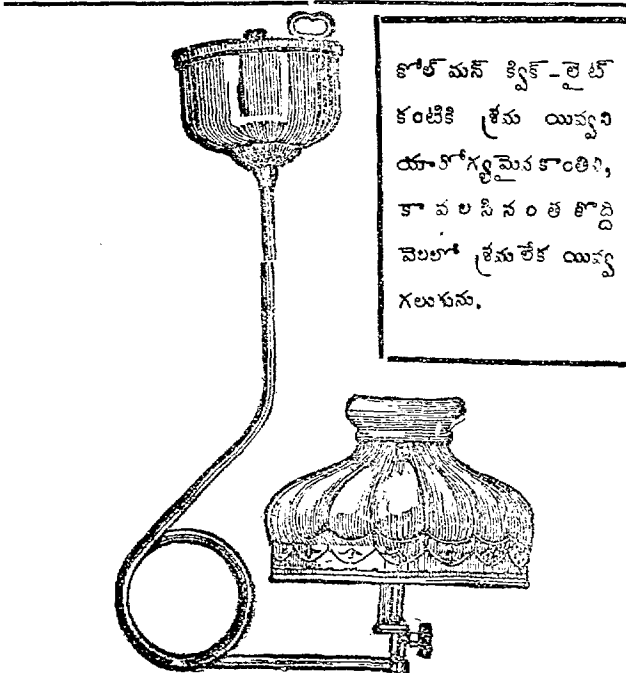 కోల్ మన్ క్విక్-లైట్
కంటికి శ్రమ యివ్వని
యారోగ్యమైన కాంతిని,
కా వ ల సి నం త కొద్ది
వెలలో శ్రమ లేక యివ్వ
గలుగును.